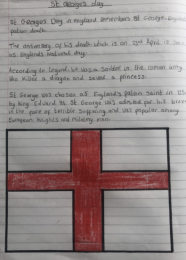 St George's day
St George's Day in england remembers St George, England's
patron saint.
The anniversary of his death which is on 23rd April is
as England's national day.
According to legend, he was a soldier in the roman army
who killed a dragon and saved a princess.
St George was chosen as England's patron saint in
by king Edward III. St George was admired for his
in the face of terrible suffering and was popular among
European knights and